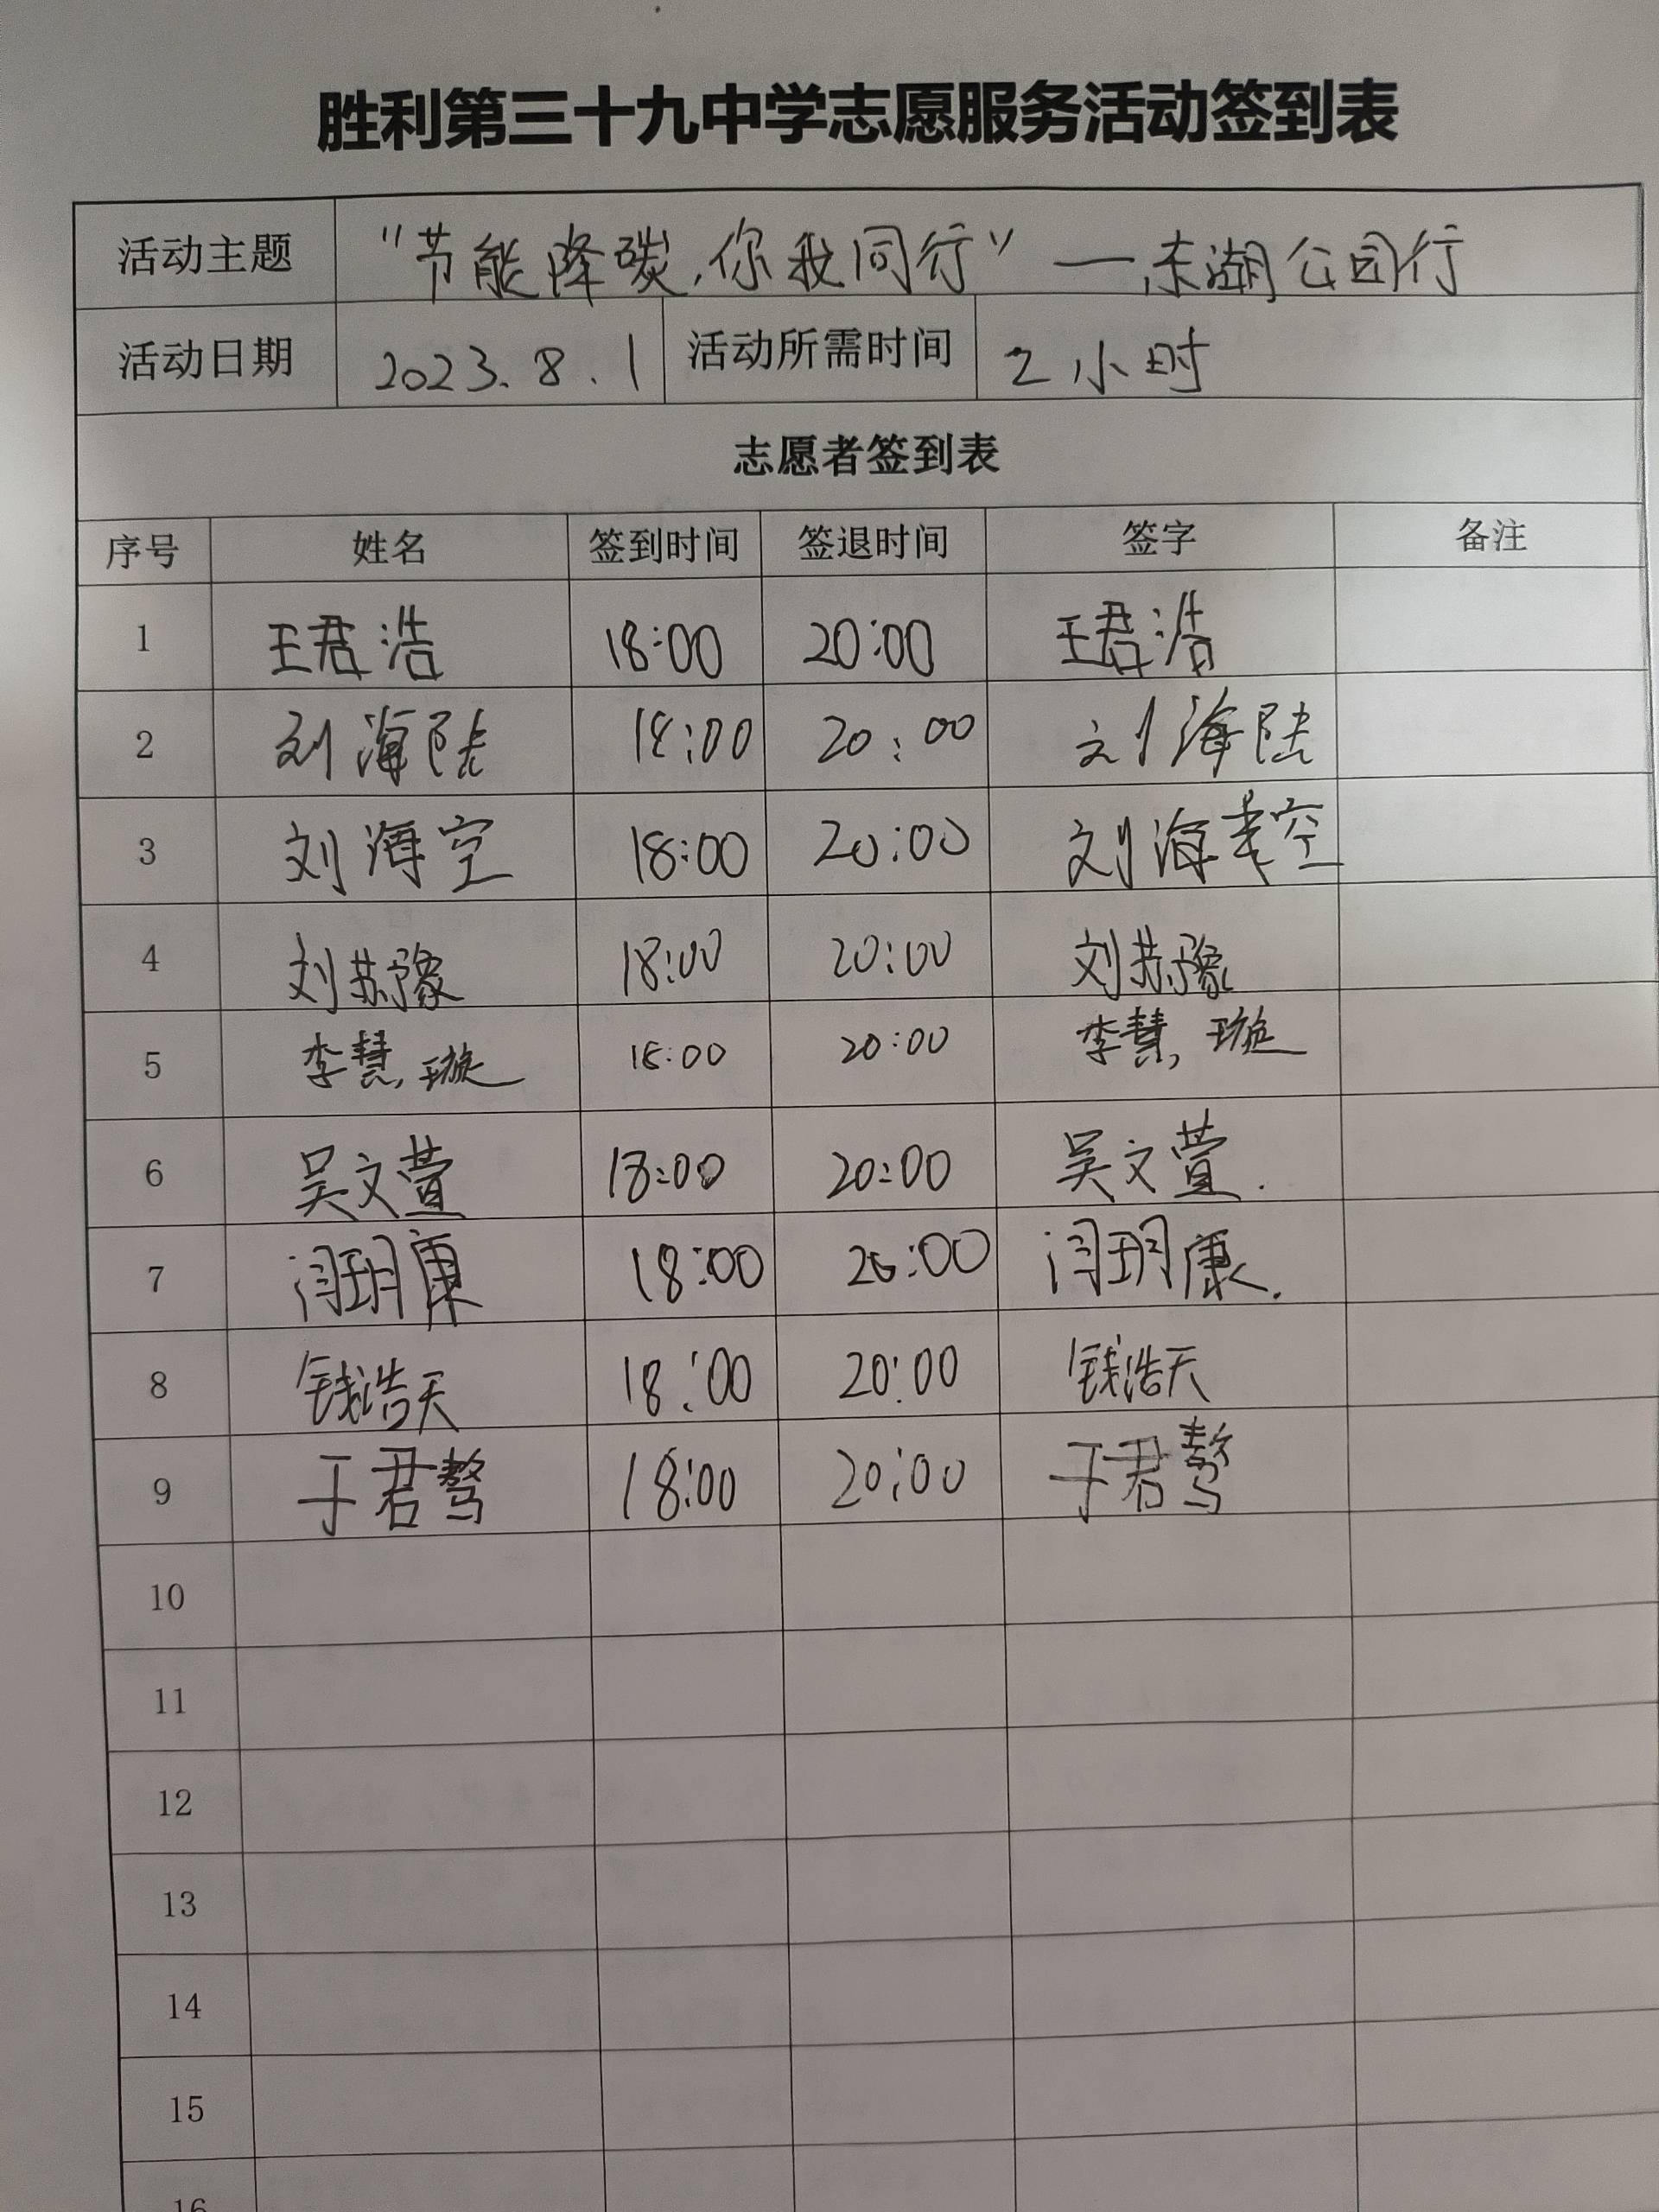 胜利第三十九中学志愿服务活动签到表
活动主题 "节能降碳,你我同行"—东湖公园行
活动日期 2023.8.1 活动所需时间 2小时
志愿者签到表
序号 姓名 签到时间 签退时间 签字 备注
1 王君浩 18:00 20:00 王君浩
2 刘海陆 18:00 20:00 刘海陆
3 刘海空 18:00 20:00 刘海空
4 刘恭豫 18:00 20:00 刘恭豫
5 李慧璇 18:00 20:00 李慧璇
6 吴文萱 18:00 20:00 吴文萱.
7 闫玥康 18:00 20:00 闫玥康.
8 钱浩天 18:00 20:00 钱浩天
9 于君骜 18:00 20:00 于君骜
10
11
12
13
14
15
16